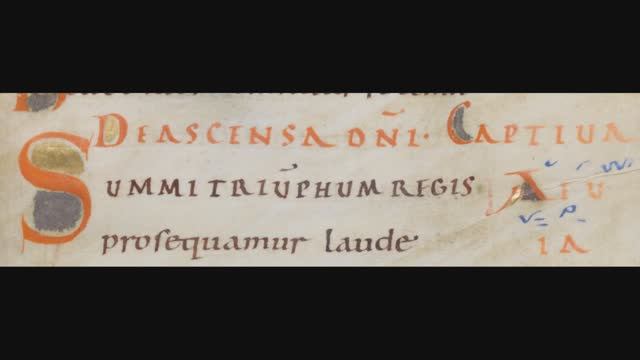 DE ASCENSA DNI· CAPTIVA
SUMMI TRIUPHUM REGIS A E U
prosequamur laude IA